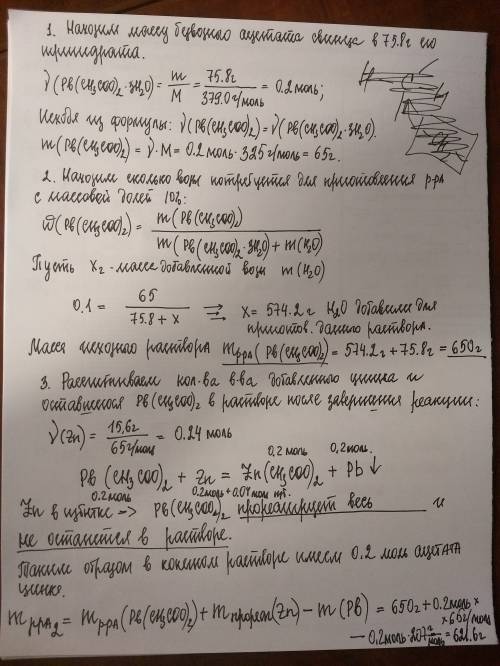 1. Находим массу безводного ацетата свинца в 75.8г его
тригидрата.
ν(Pb(CH₃COO)₂·3H₂O) = m/M = 75.8г/379.0г/моль = 0.2 моль;
Исходя из формулы: ν(Pb(CH₃COO)₂) = ν(Pb(CH₃COO)₂·3H₂O).
m(Pb(CH₃COO)₂) = ν·M = 0.2 моль·325г/моль = 65г.
2. Находим сколько воды потребуется для приготовления р-ра
с массовой долей 10%:
ω(Pb(CH₃COO)₂) = m(Pb(CH₃COO)₂)/m(Pb(CH₃COO)₂·3H₂O) + m(H₂O)
Пусть Xг - масса добавленной воды m(H₂O)
0.1 = 65/75.8 + x ⇒ x = 574.2г H₂O добавили для
приготов. данного раствора.
Масса исходного раствора m р-ра(Pb(CH₃COO)₂) = 574.2г + 75.8г = 650г
3. Рассчитываем кол-ва в-ва добавленного цинка и
оставшегося Pb(CH₃COO)₂ в растворе после завершения реакции:
ν(Zn) = 15,6г/65г/моль = 0.24 моль
0,2 моль 0,2 моль.
Pb(CH₃COO)₂ + Zn = Zn(CH₃COO)₂ + Pb↓
0.2 моль 0.2 моль + 0.04 моль изб.
Zn в избытке -> Pb(CH₃COO)₂ прореагирует весь и
не останется в растворе.
Таким образом в конечном растворе имеем 0.2 моль ацетата
цинка.
m р-ра₂ = m р-ра(Pb(CH₃COO)₂) + m прореаг(Zn) - m(Pb) = 650г + 0.2 моль ×
× 65г/моль
- 0.2 моль·207г/моль = 621.6г